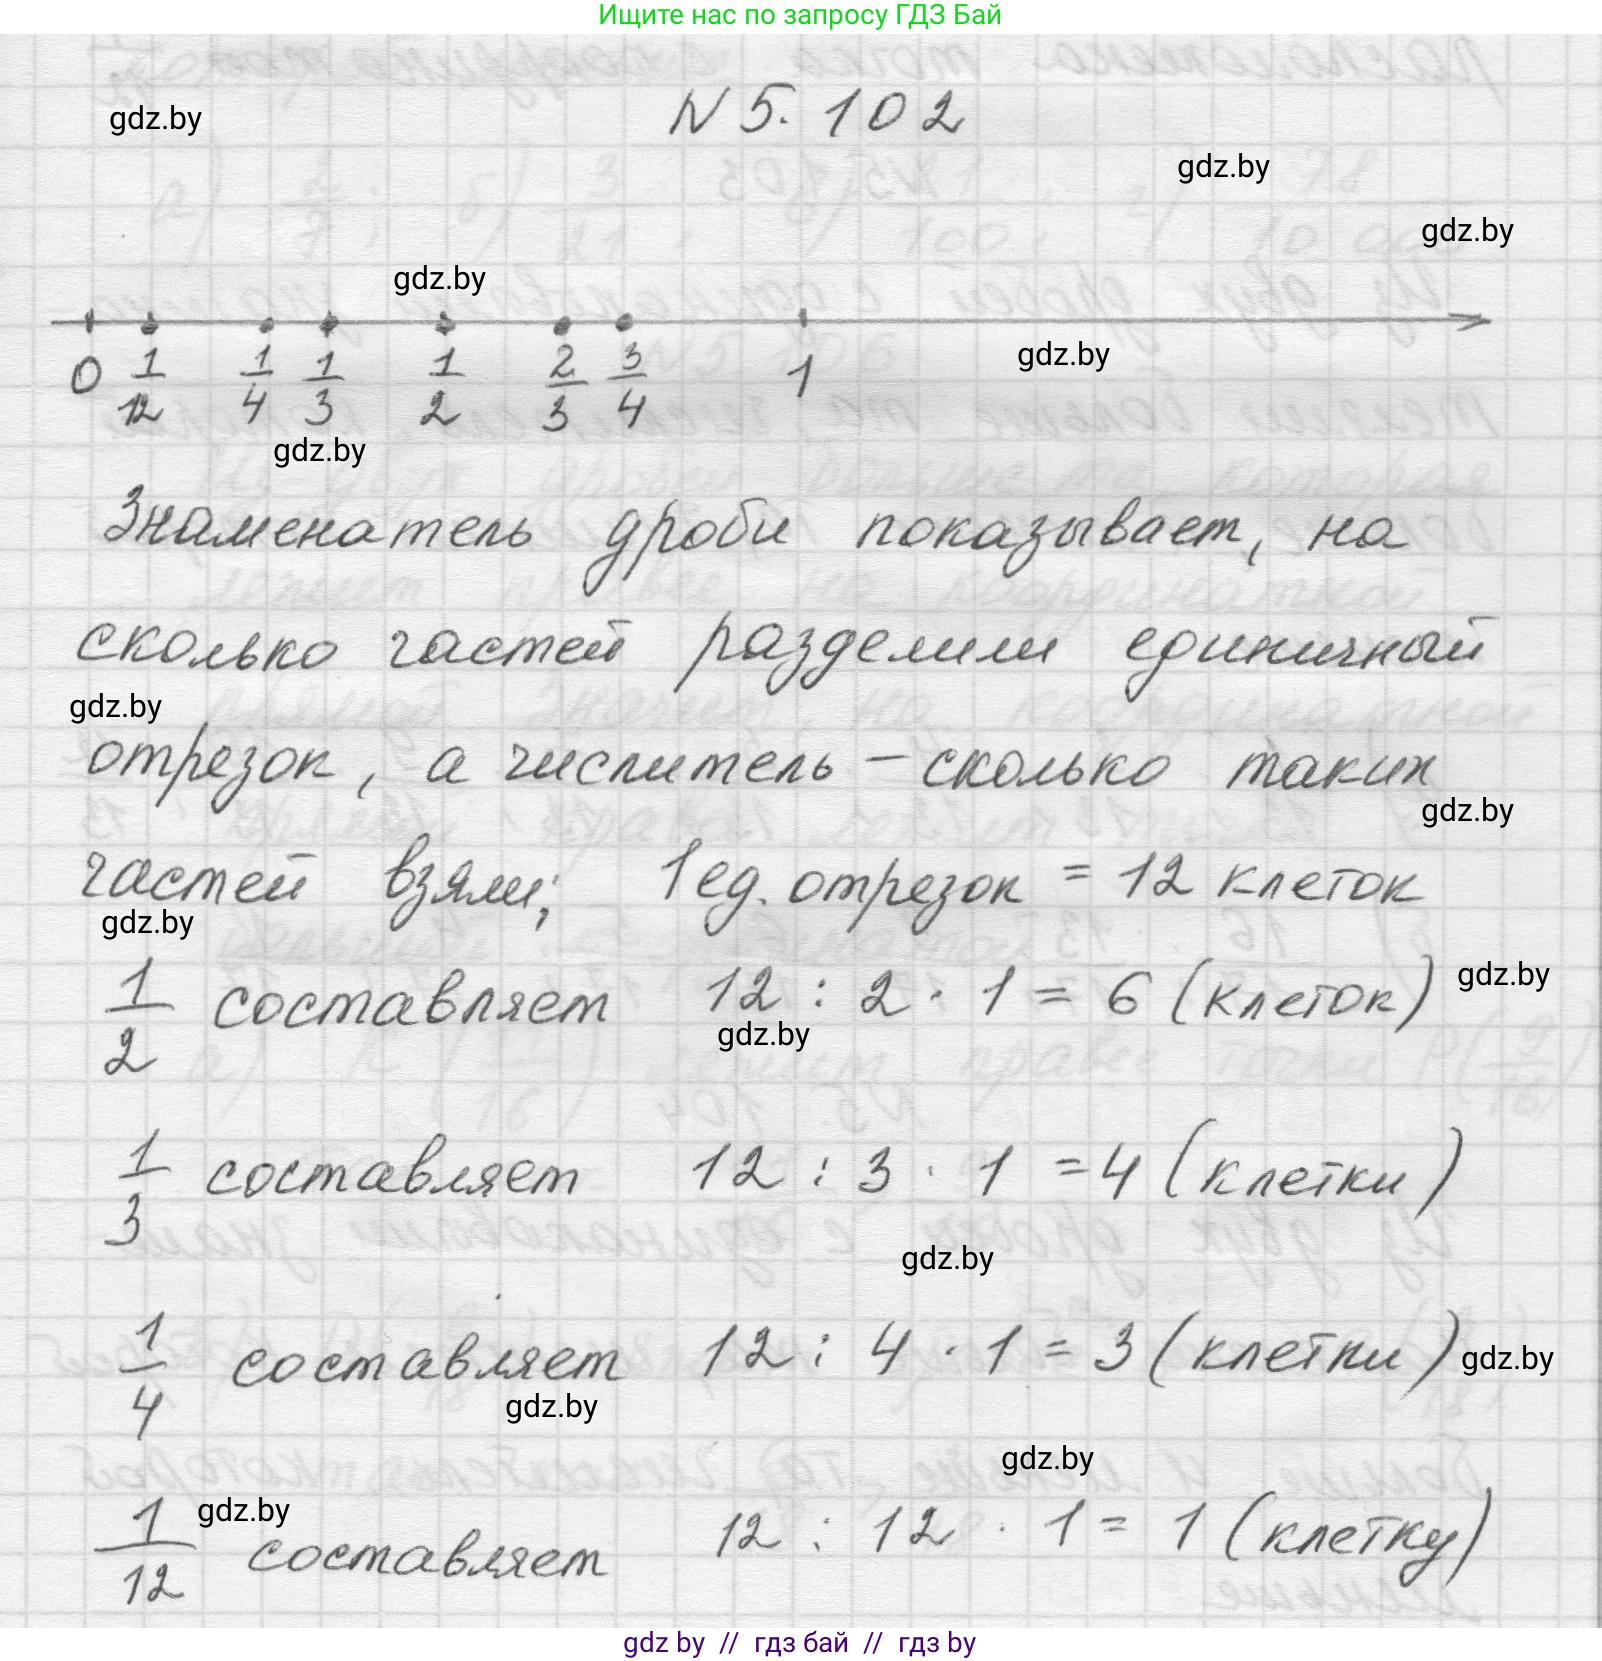 Ищите нас по запросу ГДЗ Бай
N 5. 102
gdz.by
gdz.by
gdz.by
gdz.by
gdz.by
0 1/12 1/4 1/3 1/2 2/3 3/4 1
gdz.by
Знаменатель дроби показывает, на
сколько частей разделили единичный
gdz.by
отрезок, а числитель – сколько таких
gdz.by
частей взяли; 1 ед. отрезок = 12 клеток
gdz.by
1/2 составляет 12 : 2 · 1 = 6 (клеток)
gdz.by
gdz.by
1/3 составляет 12 : 3 · 1 = 4 (клетки)
gdz.by
1/4 составляет 12 : 4 · 1 = 3 (клетки)
gdz.by
gdz.by
gdz.by
1/12 составляет 12 : 12 · 1 = 1 (клетку)
gdz.by
gdz by // гдз бай // гдз by